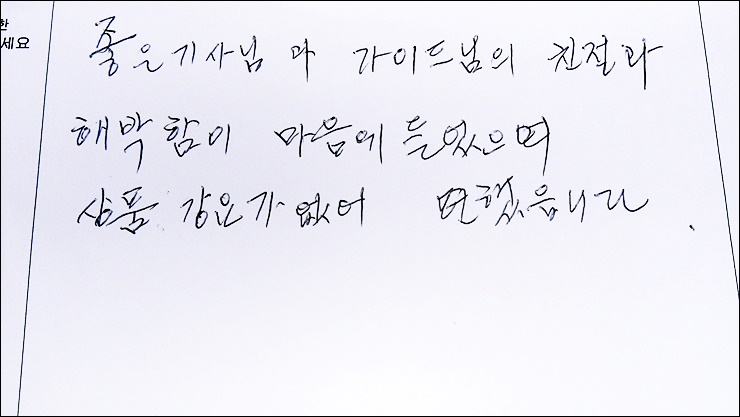 한
세요
좋은기사님과 가이드님의 친절과
해박함이 마음에 들었으며
상품 강요가 없어 편했습니다.